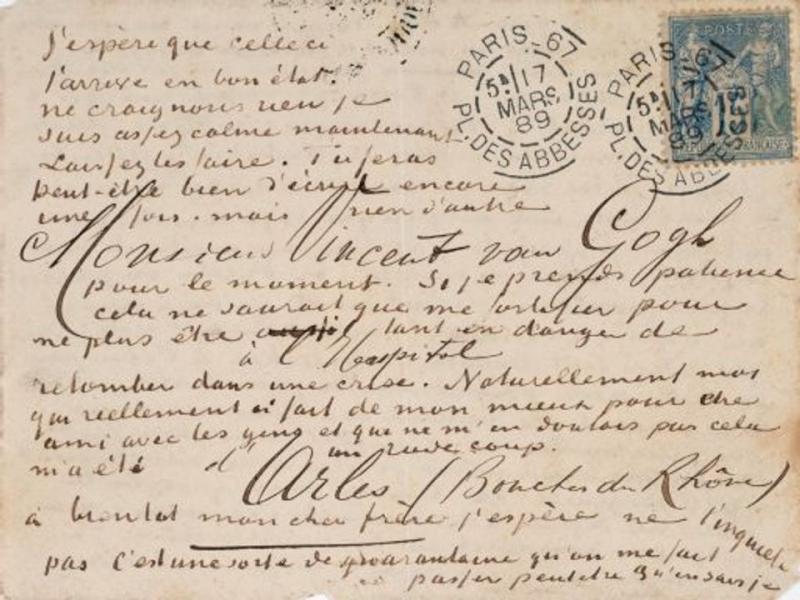 J'espère que celle ci
t'arrive en bon état.
ne craignons rien je
suis assez calme maintenant
Laissez les faire. Tu feras
peut-être bien d'écrire encore
une fois. mais rien d'autre
Monsieur Vincent van Gogh
pour le moment. Si je prends patience
cela ne saurait que me fortifier pour
ne plus être tant en danger de
à l'Hospital
retomber dans une crise. Naturellement moi
qui réellement ai fait de mon mieux pour être
ami avec les gens et qui ne m'en doutais pas cela
m'a été un rude coup.
d'Arles (Bouches du Rhône)
à bientot mon cher frère j'espère ne t'inquiète
pas c'est une sorte de quarantaine qu'on me fait
passer peutêtre qu'en sais je
PARIS_67
5E 17
MARS
89
PL. DES ABBESSES
PARIS_67
5E 17
MARS
89
PL. DES ABBESSES
POSTES
15
REPUBLIQUE FRANÇAISE